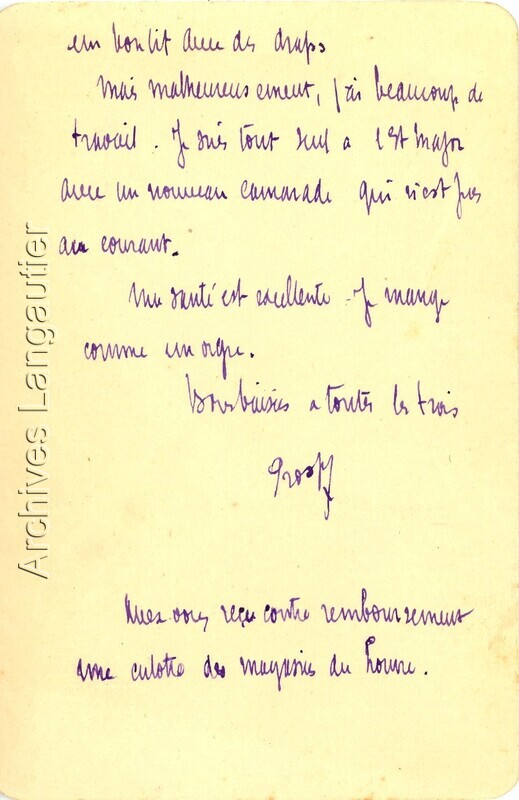 un bon lit avec des draps
Mais malheureusement, j'ai beaucoup de
travail. Je suis tout seul a l'Et Major
avec un nouveau camarade qui n'est pas
au courant.
Ma santé est excellente. Je mange
comme un ogre.
Bons baisers a toutes les trois
Avez vous reçu contre remboursement
une culotte des magasins du Louvre.
Archives Langautier